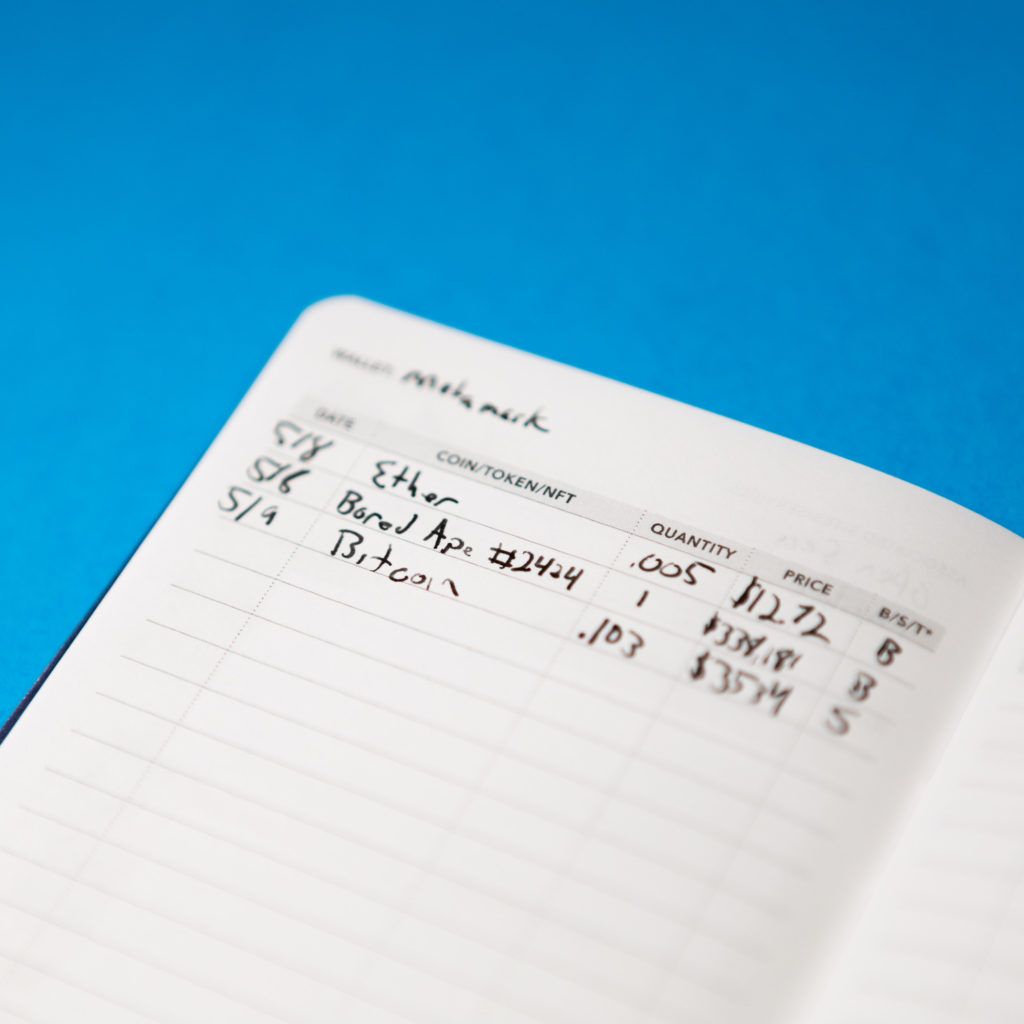 WALLET: Metamask
DATE COIN/TOKEN/NFT QUANTITY PRICE B/S/T*
5/8 Ether .005 $12.72 B
5/6 Bored Ape #2424 1 $338,181 B
5/9 Bitcoin .103 $3534 S